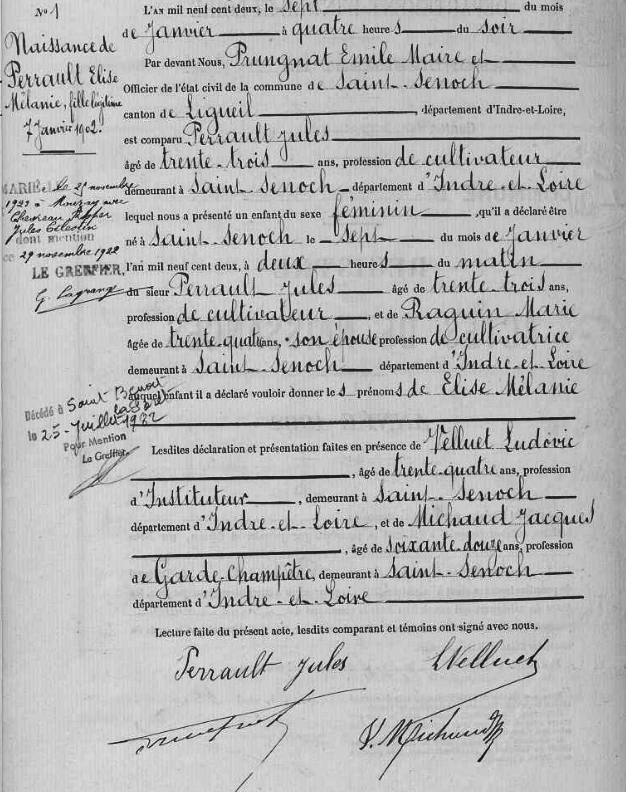 N° 1
Naissance de
Perrault Elise
Mélanie, fille légitime
7 Janvier 1902.
MARIÉ le 29 novembre
1922 à Mouzay avec
Jules Célestin
dont mention
ce 29 novembre 1922
LE GREFFIER,
G. Lagrange
Décédé à Saint Benoit
la Forêt
le 25 - Juillet - 1982
Pour Mention
Le Greffier
L'AN mil neuf cent deux, le sept du mois
de Janvier à quatre heures du soir
Par devant Nous, Prungnat Emile Maire et
Officier de l'état civil de la commune de Saint-Senoch
canton de Ligueil, département d'Indre-et-Loire,
est comparu Perrault Jules
âgé de trente-trois ans, profession de cultivateur
demeurant à Saint-Senoch département d'Indre-et-Loire
lequel nous a présenté un enfant du sexe féminin, qu'il a déclaré être
né à Saint-Senoch le sept du mois de Janvier
l'an mil neuf cent deux, à deux heures du matin
du sieur Perrault Jules âgé de trente-trois ans,
profession de cultivateur, et de Raguin Marie
âgée de trente-quatre ans, son épouse profession de cultivatrice
demeurant à Saint-Senoch département d'Indre-et-Loire
auquel enfant il a déclaré vouloir donner les prénoms de Elise Mélanie
Lesdites déclaration et présentation faites en présence de Velluet Ludovic
, âgé de trente-quatre ans, profession
d'Instituteur, demeurant à Saint-Senoch
département d'Indre-et-Loire, et de Michaud Jacques
, âgé de soixante-douze ans, profession
de Garde-Champêtre, demeurant à Saint-Senoch
département d'Indre-et-Loire
Lecture faite du présent acte, lesdits comparant et témoins ont signé avec nous.
Perrault Jules
LVelluet
J. Michaud